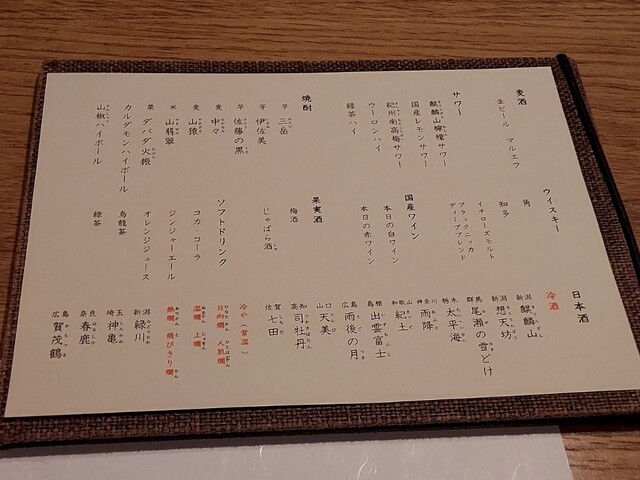 麦酒
生ビール マルエフ
サワー
麒麟山檸檬サワー
国産レモンサワー
紀州南高梅サワー
ウーロンハイ
緑茶ハイ
焼酎
芋 三岳
芋 伊佐美
芋 佐藤の黒
麦 中々
麦 山猿
米 山翡翠
栗 ダバダ火振
カルダモンハイボール
山椒ハイボール
ウイスキー
角
知多
イチローズモルト
ブラックニッカ
ディープブレンド
国産ワイン
本日の白ワイン
本日の赤ワイン
果実酒
梅酒
じゃばら酒
ソフトドリンク
コカ・コーラ
ジンジャーエール
オレンジジュース
烏龍茶
緑茶
日本酒
冷酒
新潟 麒麟山
新潟 想天坊
群馬 尾瀬の雪どけ
栃木 太平海
神奈川 雨降
和歌山 紀土
島根 出雲富士
広島 雨後の月
山口 天美
高知 司牡丹
佐賀 七田
冷や(常温)
日向燗 人肌燗
温燗 上燗
熱燗 飛びきり燗
新潟 緑川
埼玉 神亀
奈良 春鹿
広島 賀茂鶴